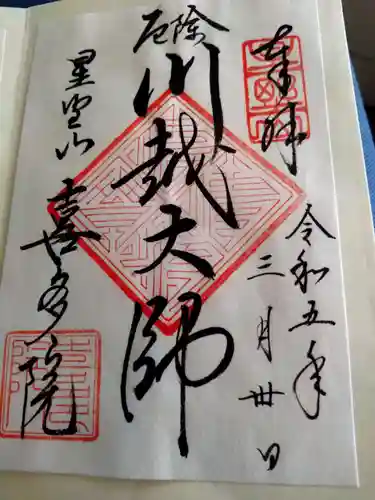 奉拝
令和五年
三月卅日
厄除
川越大師
星野山
喜多院